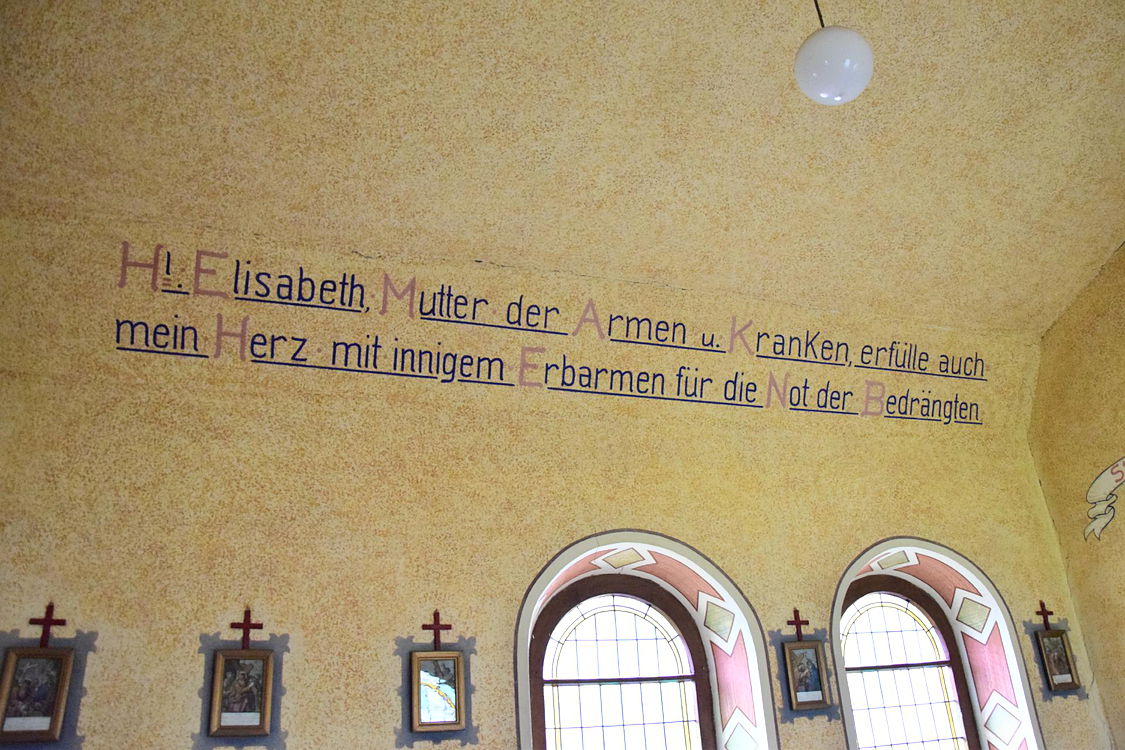 Hl. Elisabeth, Mutter der Armen u. Kranken, erfülle auch
mein Herz mit innigem Erbarmen für die Not der Bedrängten.